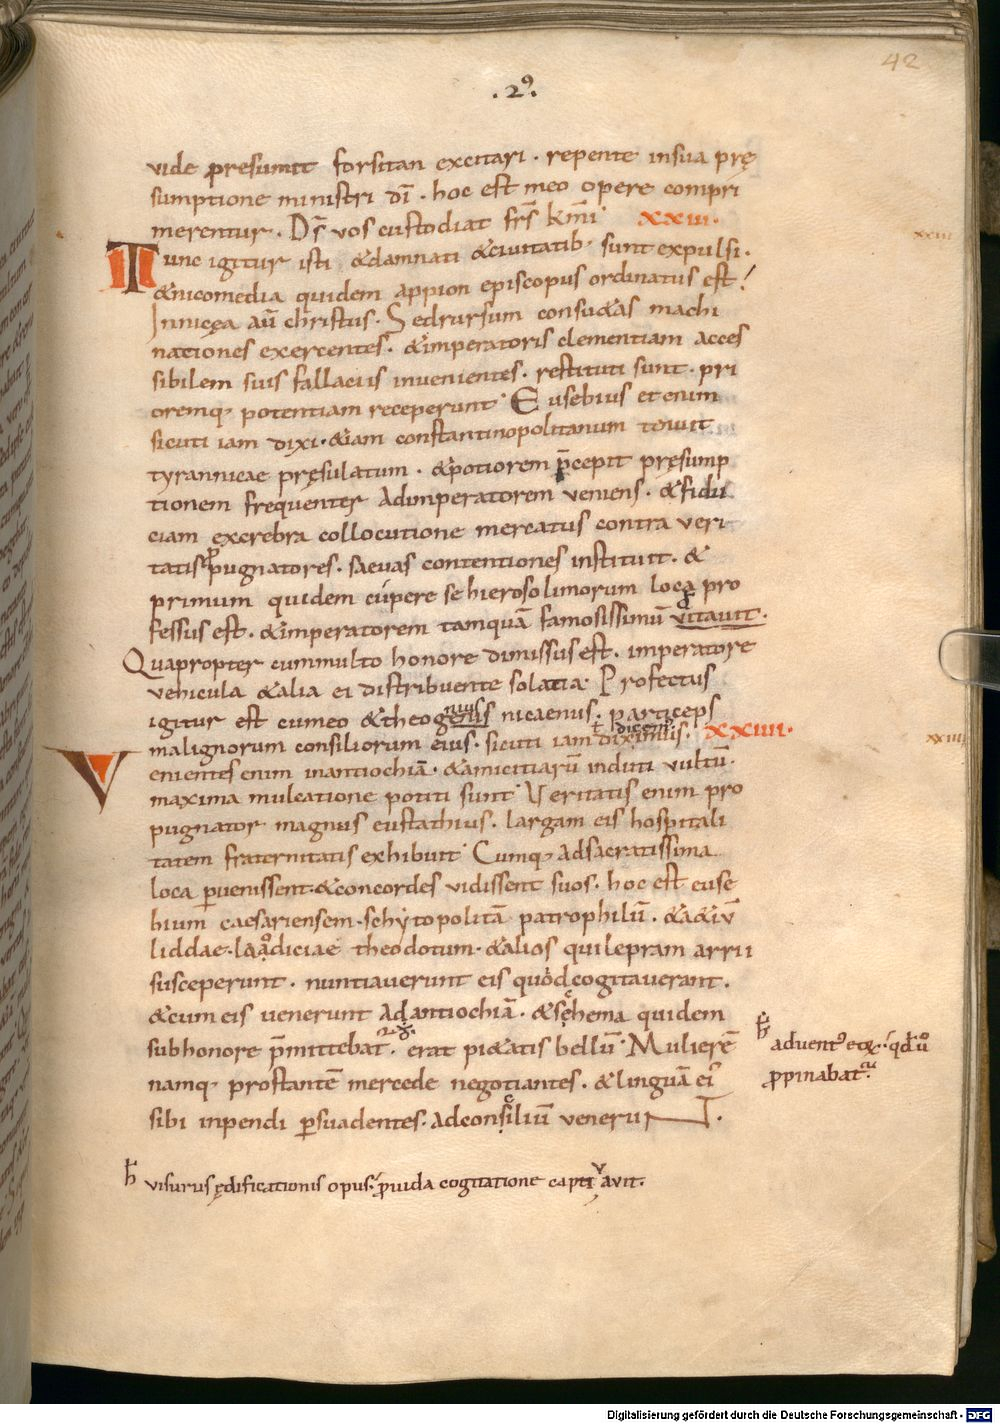 42
.29.
vide presumit forsitan excitari . repente insua pre
sumptione ministri dī . hoc est meo opere compri
merentur . Ds̄ vos custodiat frs̄ kmi xxiii.
xxiii
Tunc igitur isti &damnati &civitatib; sunt expulsi .
&nicomedia quidem appion episcopus ordinatus est !
Innicęa aū christus . Sedrursum consu&as machi
nationes exercentes . &imperatoris clementiam acces
sibilem suis fallaciis invenientes . restituti sunt . pri
oremq; potentiam receperunt Eusebius et enim
sicuti iam dixi . &iam constantinopolitanum tenuit
tyrannicae pręsulatum . &potiorem p̄cepit pręsump
tionem frequenter Adimperatorem veniens . &fidu
ciam excrebra collocutione mercatus contra veri
tatis pugnatores . saevas contentiones instituit . &
primum quidem cúpere se hierosolimorum loca pro
fessus est . &imperatorem tamquā famosissimū vitavit .
Quapropter cummulto honore dimissus est . imperatore
vehicula &alia ei distribuente solatia Profectus
nius
igitur est cumeo &theogenus nicaenus . particeps
ł dicem;
malignorum consiliorum eius . sicuti iam diximus . xxiiii.
xxiiii
Venientes enim inantiochiā . &amicitiarū induti vultū .
maxima mulcatione potiti sunt Veritatis enim pro
pugnator magnus eustathius . largam eis hospitali
tatem fraternitatis exhibuit Cumq; adsacratissima
loca puenissent . &concordes vidissent suos . hoc est euse
bium caesariensem . schytopolitā patrophilū . &a&iū
liddae . laodiciae theodotum . &alios quilepram arrii
susceperunt . nuntiaverunt eis quod cogitaverant .
&cumeis venerunt Adantiochiā . &schema quidem
subhonore p̄mittebat . erat pi&atis bellū Mulierē
namq; prostantē mercede negotiantes . &linguā ei
sibi inpendi psuadentes . Adconsiliū venerunt .
h adventꝰ
ppinabat
h visurus ędificationis opus . pvida cogitatione captivavit .
Digitalisierung gefördert durch die Deutsche Forschungsgemeinschaft - DFG